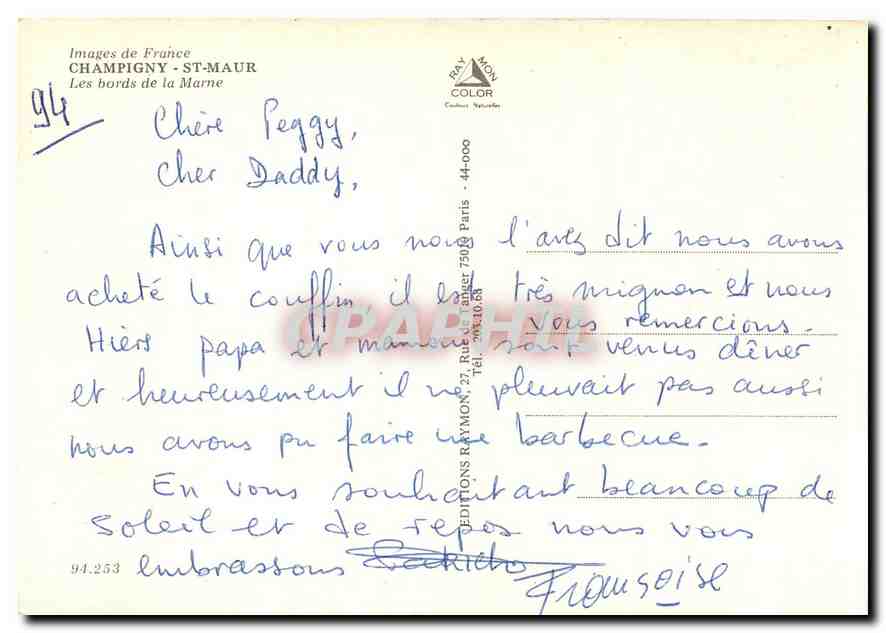 Images de France
CHAMPIGNY - ST-MAUR
Les bords de la Marne
RAYMON
COLOR
Couleurs Naturelles
94
Chère Peggy,
Cher Daddy,
Ainsi que vous nous l'avez dit nous avons
acheté le couffin il est très mignon et nous
vous remercions.
Hiers papa et maman sont venus dîner
et heureusement il ne pleuvait pas aussi
nous avons pu faire une barbecue.
En vous souhaitant beaucoup de
soleil et de repos nous vous
embrassons
Françoise
94.253
EDITIONS RAYMON, 27, Rue de Tanger 75019 Paris - 44-000
Tél. 203.10.68
CPAPHIL